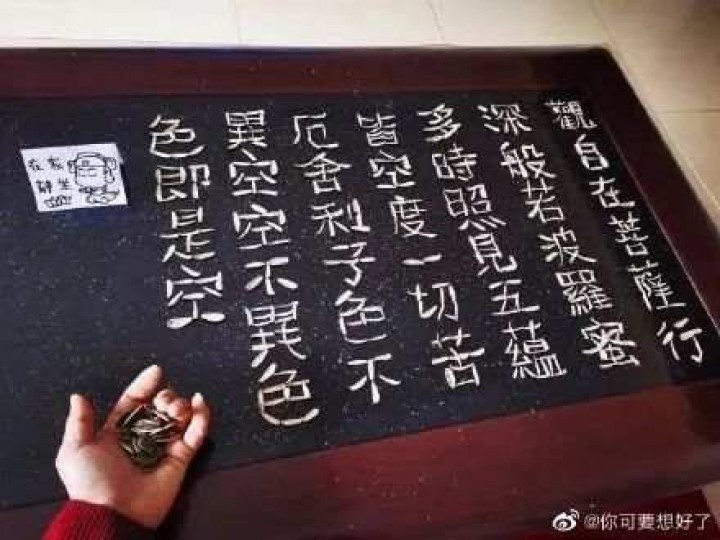 觀自在菩薩行
深般若波羅蜜
多時照見五蘊
皆空度一切苦
厄舍利子色不
異空空不異色
色即是空
在家
静坐
@你可要想好了